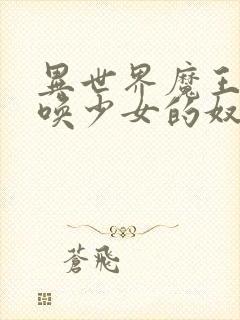 異世界魔王
喚少女的奴
蒼飛